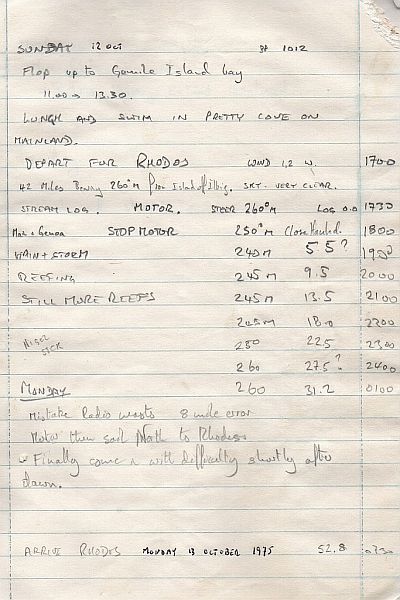 SUNDAY 12 OCT BP 1012
Flop up to Gemile Island bay
11.00 → 13.30.
LUNCH AND SWIM IN PRETTY COVE ON
MAINLAND.
DEPART FOR RHODOS WIND 1,2 W. 1700
42 Miles Bearing 260°M from Island of. SKY. VERY CLEAR.
STREAM LOG. MOTOR. STEER 260°M LOG 0.0 1730
Main + Genoa STOP MOTOR 250°M Close Hauled 1800
MAIN + STORM 240M 5.5? 1900
REEFING 245M 9.5 2000
STILL MORE REEFS 245M 13.5 2100
245M 18.0 2200
NIGEL SICK 250 22.5 2300
260 27.5? 2400
MONDAY 260 31.2 0100
Mistake Radio 8 mile error
Motor then sail North to Rhodes
Finally come in with difficulty shortly after
dawn.
ARRIVE RHODOS MONDAY 13 OCTOBER 1975 52.8 0730